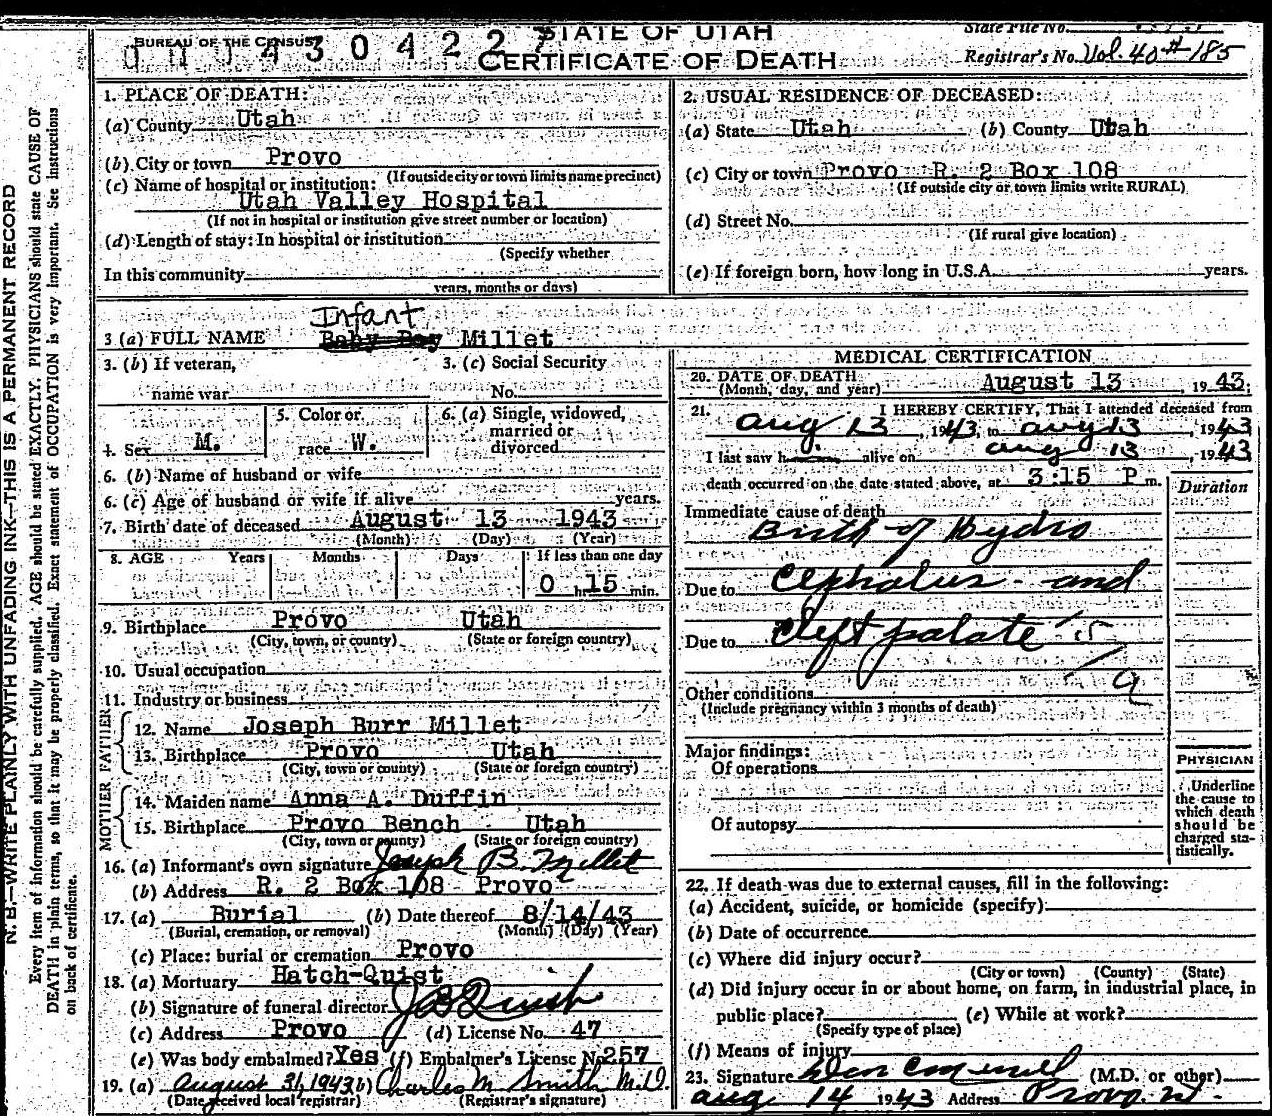 BUREAU OF THE CENSUS
STATE OF UTAH
CERTIFICATE OF DEATH
State File No.
Registrar's No. Vol. 40 # 185
N. B.—WRITE PLAINLY WITH UNFADING INK—THIS IS A PERMANENT RECORD
Every item of information should be carefully supplied. AGE should be stated EXACTLY. PHYSICIANS should state CAUSE OF
DEATH in plain terms, so that it may be properly classified. Exact statement of OCCUPATION is very important. See instructions
on back of certificate.
1. PLACE OF DEATH:
(a) County Utah
(b) City or town Provo
(If outside city or town limits name precinct)
(c) Name of hospital or institution:
Utah Valley Hospital
(If not in hospital or institution give street number or location)
(d) Length of stay: In hospital or institution
(Specify whether
In this community
years, months or days)
2. USUAL RESIDENCE OF DECEASED:
(a) State Utah (b) County Utah
(c) City or town Provo R. 2 Box 108
(If outside city or town limits write RURAL)
(d) Street No.
(If rural give location)
(e) If foreign born, how long in U.S.A. years.
Infant
3 (a) FULL NAME Baby Boy Millet
3. (b) If veteran,
name war
3. (c) Social Security
No.
4. Sex M.
5. Color or
race W.
6. (a) Single, widowed,
married or
divorced
6. (b) Name of husband or wife
6. (c) Age of husband or wife if alive years.
7. Birth date of deceased August 13 1943
(Month) (Day) (Year)
8. AGE Years Months Days If less than one day
0 hr. 15 min.
9. Birthplace Provo Utah
(City, town, or county) (State or foreign country)
10. Usual occupation
11. Industry or business
FATHER
12. Name Joseph Burr Millet
13. Birthplace Provo Utah
(City, town or county) (State or foreign country)
MOTHER
14. Maiden name Anna A. Duffin
15. Birthplace Provo Bench Utah
(City, town or county) (State or foreign country)
16. (a) Informant's own signature Joseph B. Millet
(b) Address R. 2 Box 108 Provo
17. (a) Burial (b) Date thereof 8/14/43
(Burial, cremation, or removal) (Month) (Day) (Year)
(c) Place: burial or cremation Provo
18. (a) Mortuary Hatch-Quist
(b) Signature of funeral director
(c) Address Provo (d) License No. 47
(e) Was body embalmed? Yes (f) Embalmer's License No. 257
19. (a) August 31, 1943 (b) Charles M. Smith M.D.
(Date received local registrar) (Registrar's signature)
MEDICAL CERTIFICATION
20. DATE OF DEATH
(Month, day, and year) August 13 1943;
21. I HEREBY CERTIFY, That I attended deceased from
Aug 13, 1943, to Aug 13, 1943
I last saw h alive on Aug 13, 1943
death occurred on the date stated above, at 3:15 P m.
Duration
Immediate cause of death
Birth of Hydro
Due to Cephalus - and
Due to Cleft palate
Other conditions
(Include pregnancy within 3 months of death)
Major findings:
Of operations
Of autopsy
PHYSICIAN
Underline
the cause to
which death
should be
charged sta-
tistically.
22. If death was due to external causes, fill in the following:
(a) Accident, suicide, or homicide (specify):
(b) Date of occurrence
(c) Where did injury occur?
(City or town) (County) (State)
(d) Did injury occur in or about home, on farm, in industrial place, in
public place? (e) While at work?
(Specify type of place)
(f) Means of injury
23. Signature (M.D. or other)
Aug 14 1943 Address Provo